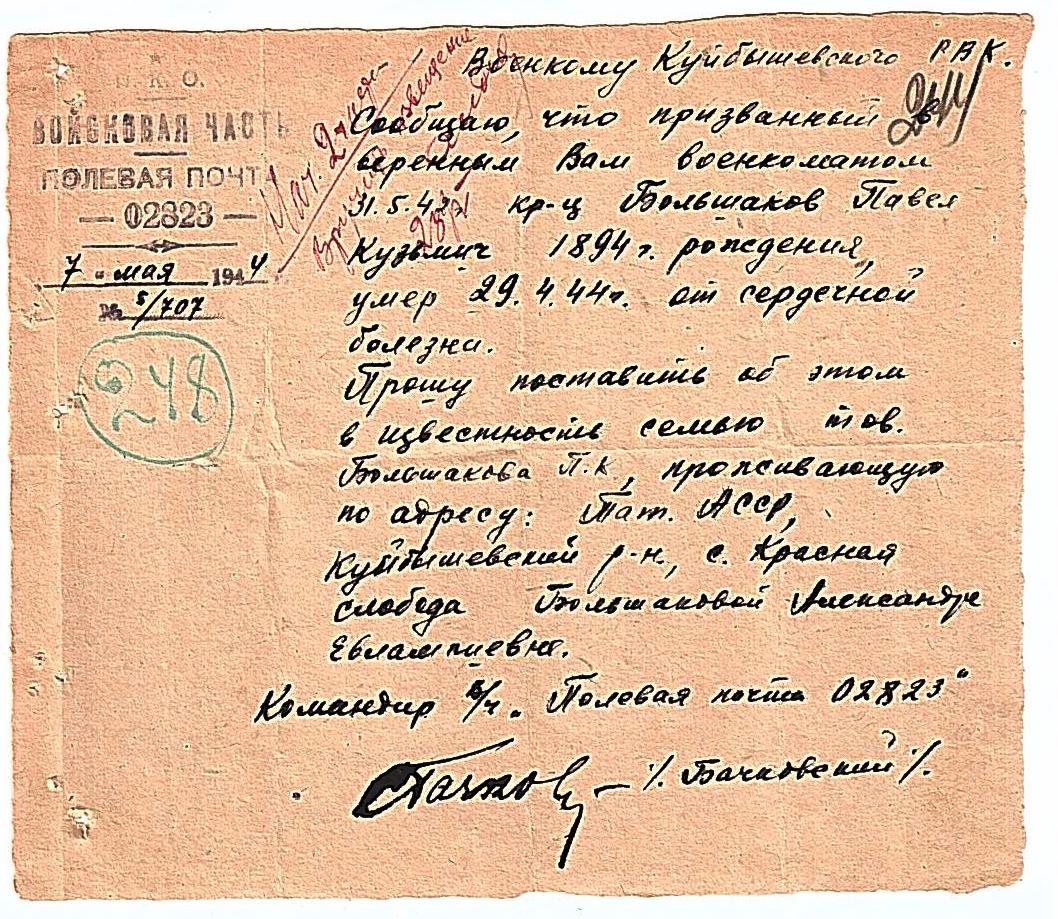 Н. К. О.
ВОЙСКОВАЯ ЧАСТЬ
ПОЛЕВАЯ ПОЧТА
— 02823 —
7 " мая 1944
№ 5/707
248
244
Нач. 2 части
извещение
Военкому Куйбышевского Р.В.К.
Сообщаю, что призванный в
веренным Вам военкоматом
31.5.42г кр-ц Большаков Павел
Кузьмич 1894 г. рождения,
умер 29.4.44г. от сердечной
болезни.
Прошу поставить об этом
в известность семью тов.
Большакова П.К, проживающую
по адресу: Тат. АССР,
Куйбышевский р-н, с. Красная
слобода Большаковой Александре
Евлампиевне.
Командир в/ч „Полевая почта 02823"
/. Бачковский /.